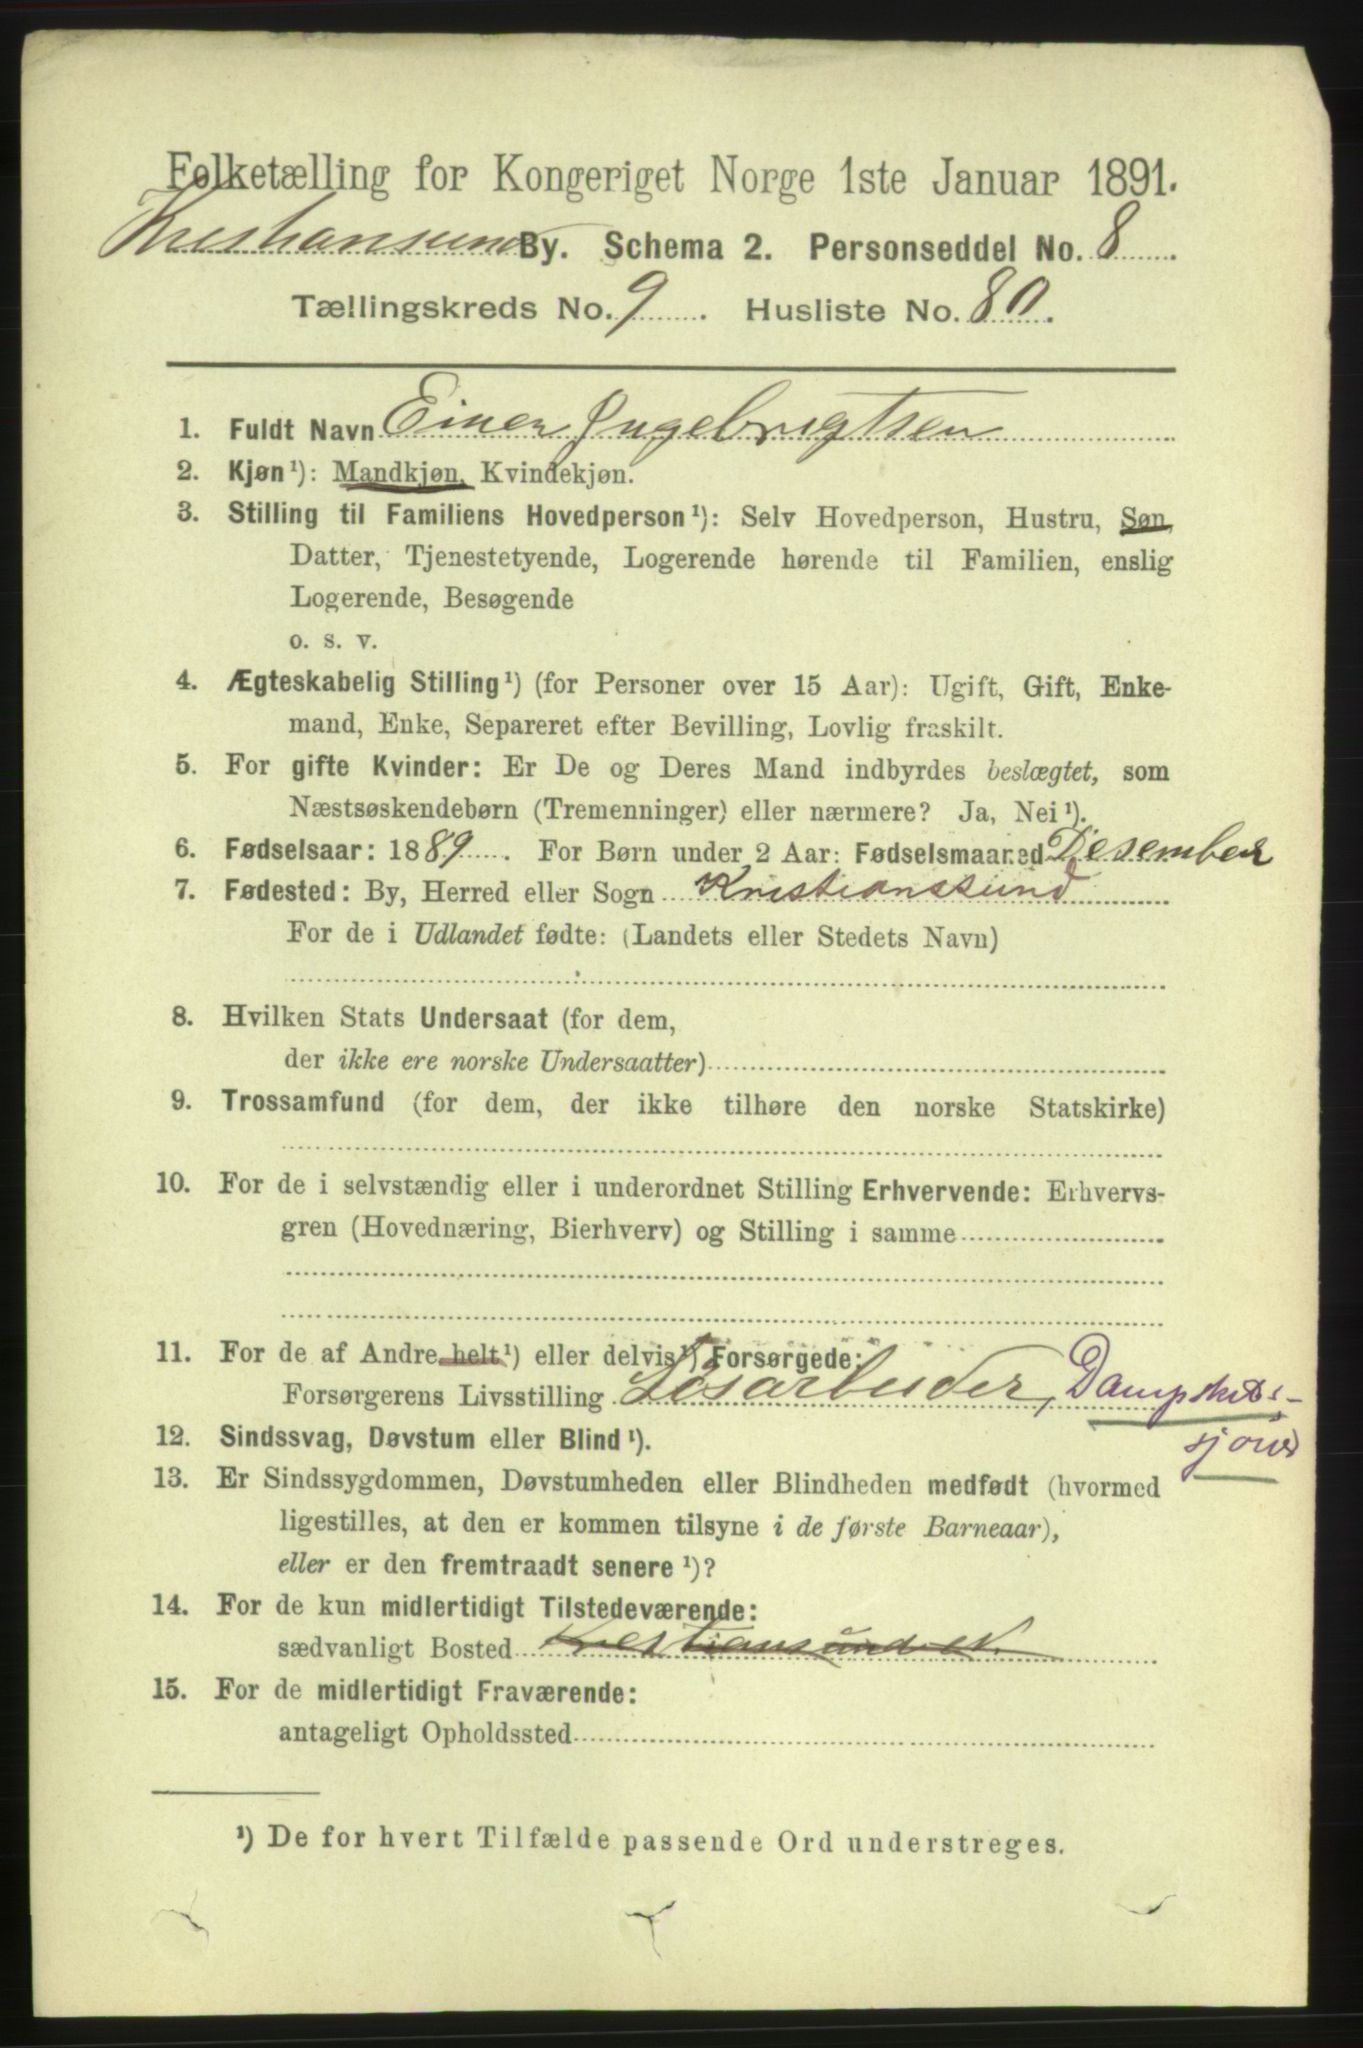 Folketælling for Kongeriget Norge 1ste Januar 1891.
Kristiansund By. Schema 2. Personseddel No. 8
Tællingskreds No. 9. Husliste No. 80.
1. Fuldt Navn Einer Ingebrigtsen
2. Kjøn¹): Mandkjøn, Kvindekjøn.
3. Stilling til Familiens Hovedperson¹): Selv Hovedperson, Hustru, Søn,
Datter, Tjenestetyende, Logerende hørende til Familien, enslig
Logerende, Besøgende
o. s. v.
4. Ægteskabelig Stilling¹) (for Personer over 15 Aar): Ugift, Gift, Enke-
mand, Enke, Separeret efter Bevilling, Lovlig fraskilt.
5. For gifte Kvinder: Er De og Deres Mand indbyrdes beslægtet, som
Næstsøskendebørn (Tremenninger) eller nærmere? Ja, Nei¹).
6. Fødselsaar: 1889. For Børn under 2 Aar: Fødselsmaaned Desember
7. Fødested: By, Herred eller Sogn Kristianssund
For de i Udlandet fødte: (Landets eller Stedets Navn)
8. Hvilken Stats Undersaat (for dem,
der ikke ere norske Undersaatter)
9. Trossamfund (for dem, der ikke tilhøre den norske Statskirke)
10. For de i selvstændig eller i underordnet Stilling Erhvervende: Erhvervs-
gren (Hovednæring, Bierhverv) og Stilling i samme
11. For de af Andre helt¹) eller delvis¹) Forsørgede:
Forsørgerens Livsstilling Løsarbeider, Dampskibs-
sjouer
12. Sindssvag, Døvstum eller Blind¹).
13. Er Sindssygdommen, Døvstumheden eller Blindheden medfødt (hvormed
ligestilles, at den er kommen tilsyne i de første Barneaar),
eller er den fremtraadt senere¹)?
14. For de kun midlertidigt Tilstedeværende:
sædvanligt Bosted Kristiansund N.
15. For de midlertidigt Fraværende:
antageligt Opholdssted
¹) De for hvert Tilfælde passende Ord understreges.